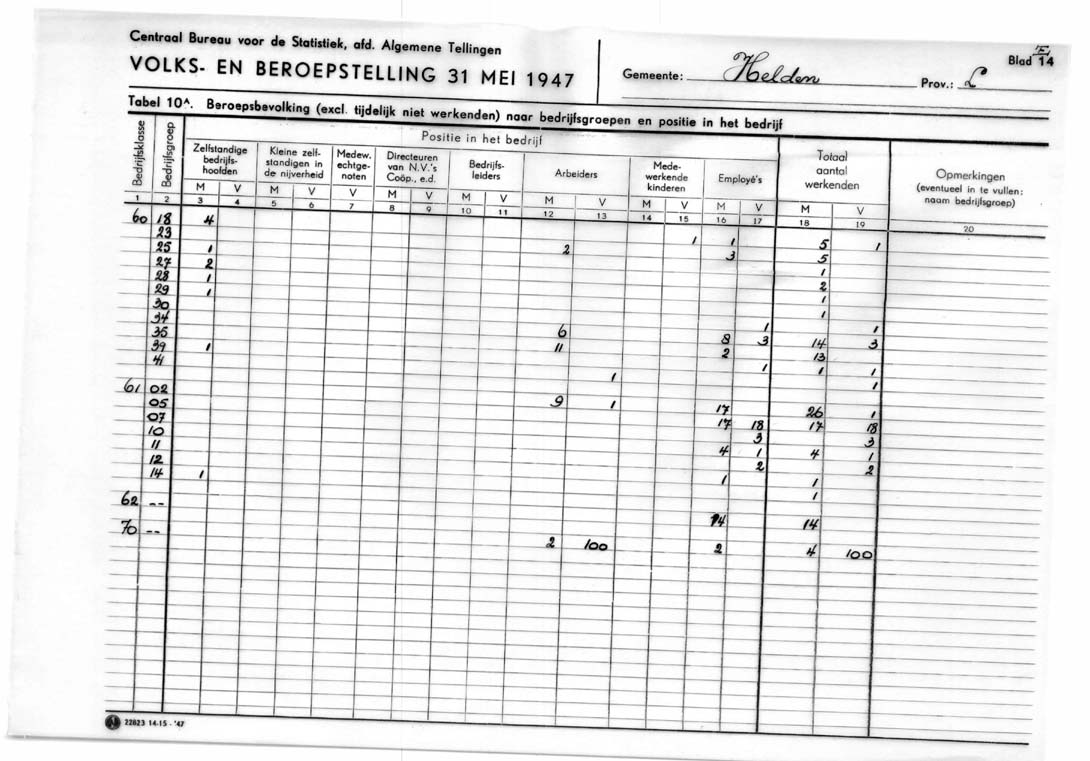 Centraal Bureau voor de Statistiek, afd. Algemene Tellingen
VOLKS- EN BEROEPSTELLING 31 MEI 1947
Gemeente: Helden Prov.: L
Blad 14
Tabel 10A. Beroepsbevolking (excl. tijdelijk niet werkenden) naar bedrijfsgroepen en positie in het bedrijf
Bedrijfsklasse
Bedrijfsgroep
Positie in het bedrijf
Zelfstandige bedrijfs- hoofden
Kleine zelf- standigen in de nijverheid
Medew. echtge- noten
Directeuren van N.V.'s Coöp., e.d.
Bedrijfs- leiders
Arbeiders
Mede- werkende kinderen
Employé's
Totaal aantal werkenden
Opmerkingen (eventueel in te vullen: naam bedrijfsgroep)
M V M V V M V M V M V M V M V M V
1 2 3 4 5 6 7 8 9 10 11 12 13 14 15 16 17 18 19 20
60 18 4 1 1 5 1
23 2 3 5
25 1 1
27 2 2
28 1 1
29 1 1
30 1 1
34 6 8 3 14 3
35 11 2 13
39 1 1 1 1
41 1 1
61 02 9 1 17 26 1
05 17 18 17 18
07 3 3
10 4 1 4 1
11 2 2
12 1 1
14 1 1
62 -- 14 14
70 -- 2 100 2 4 100
22823 14-15 - '47